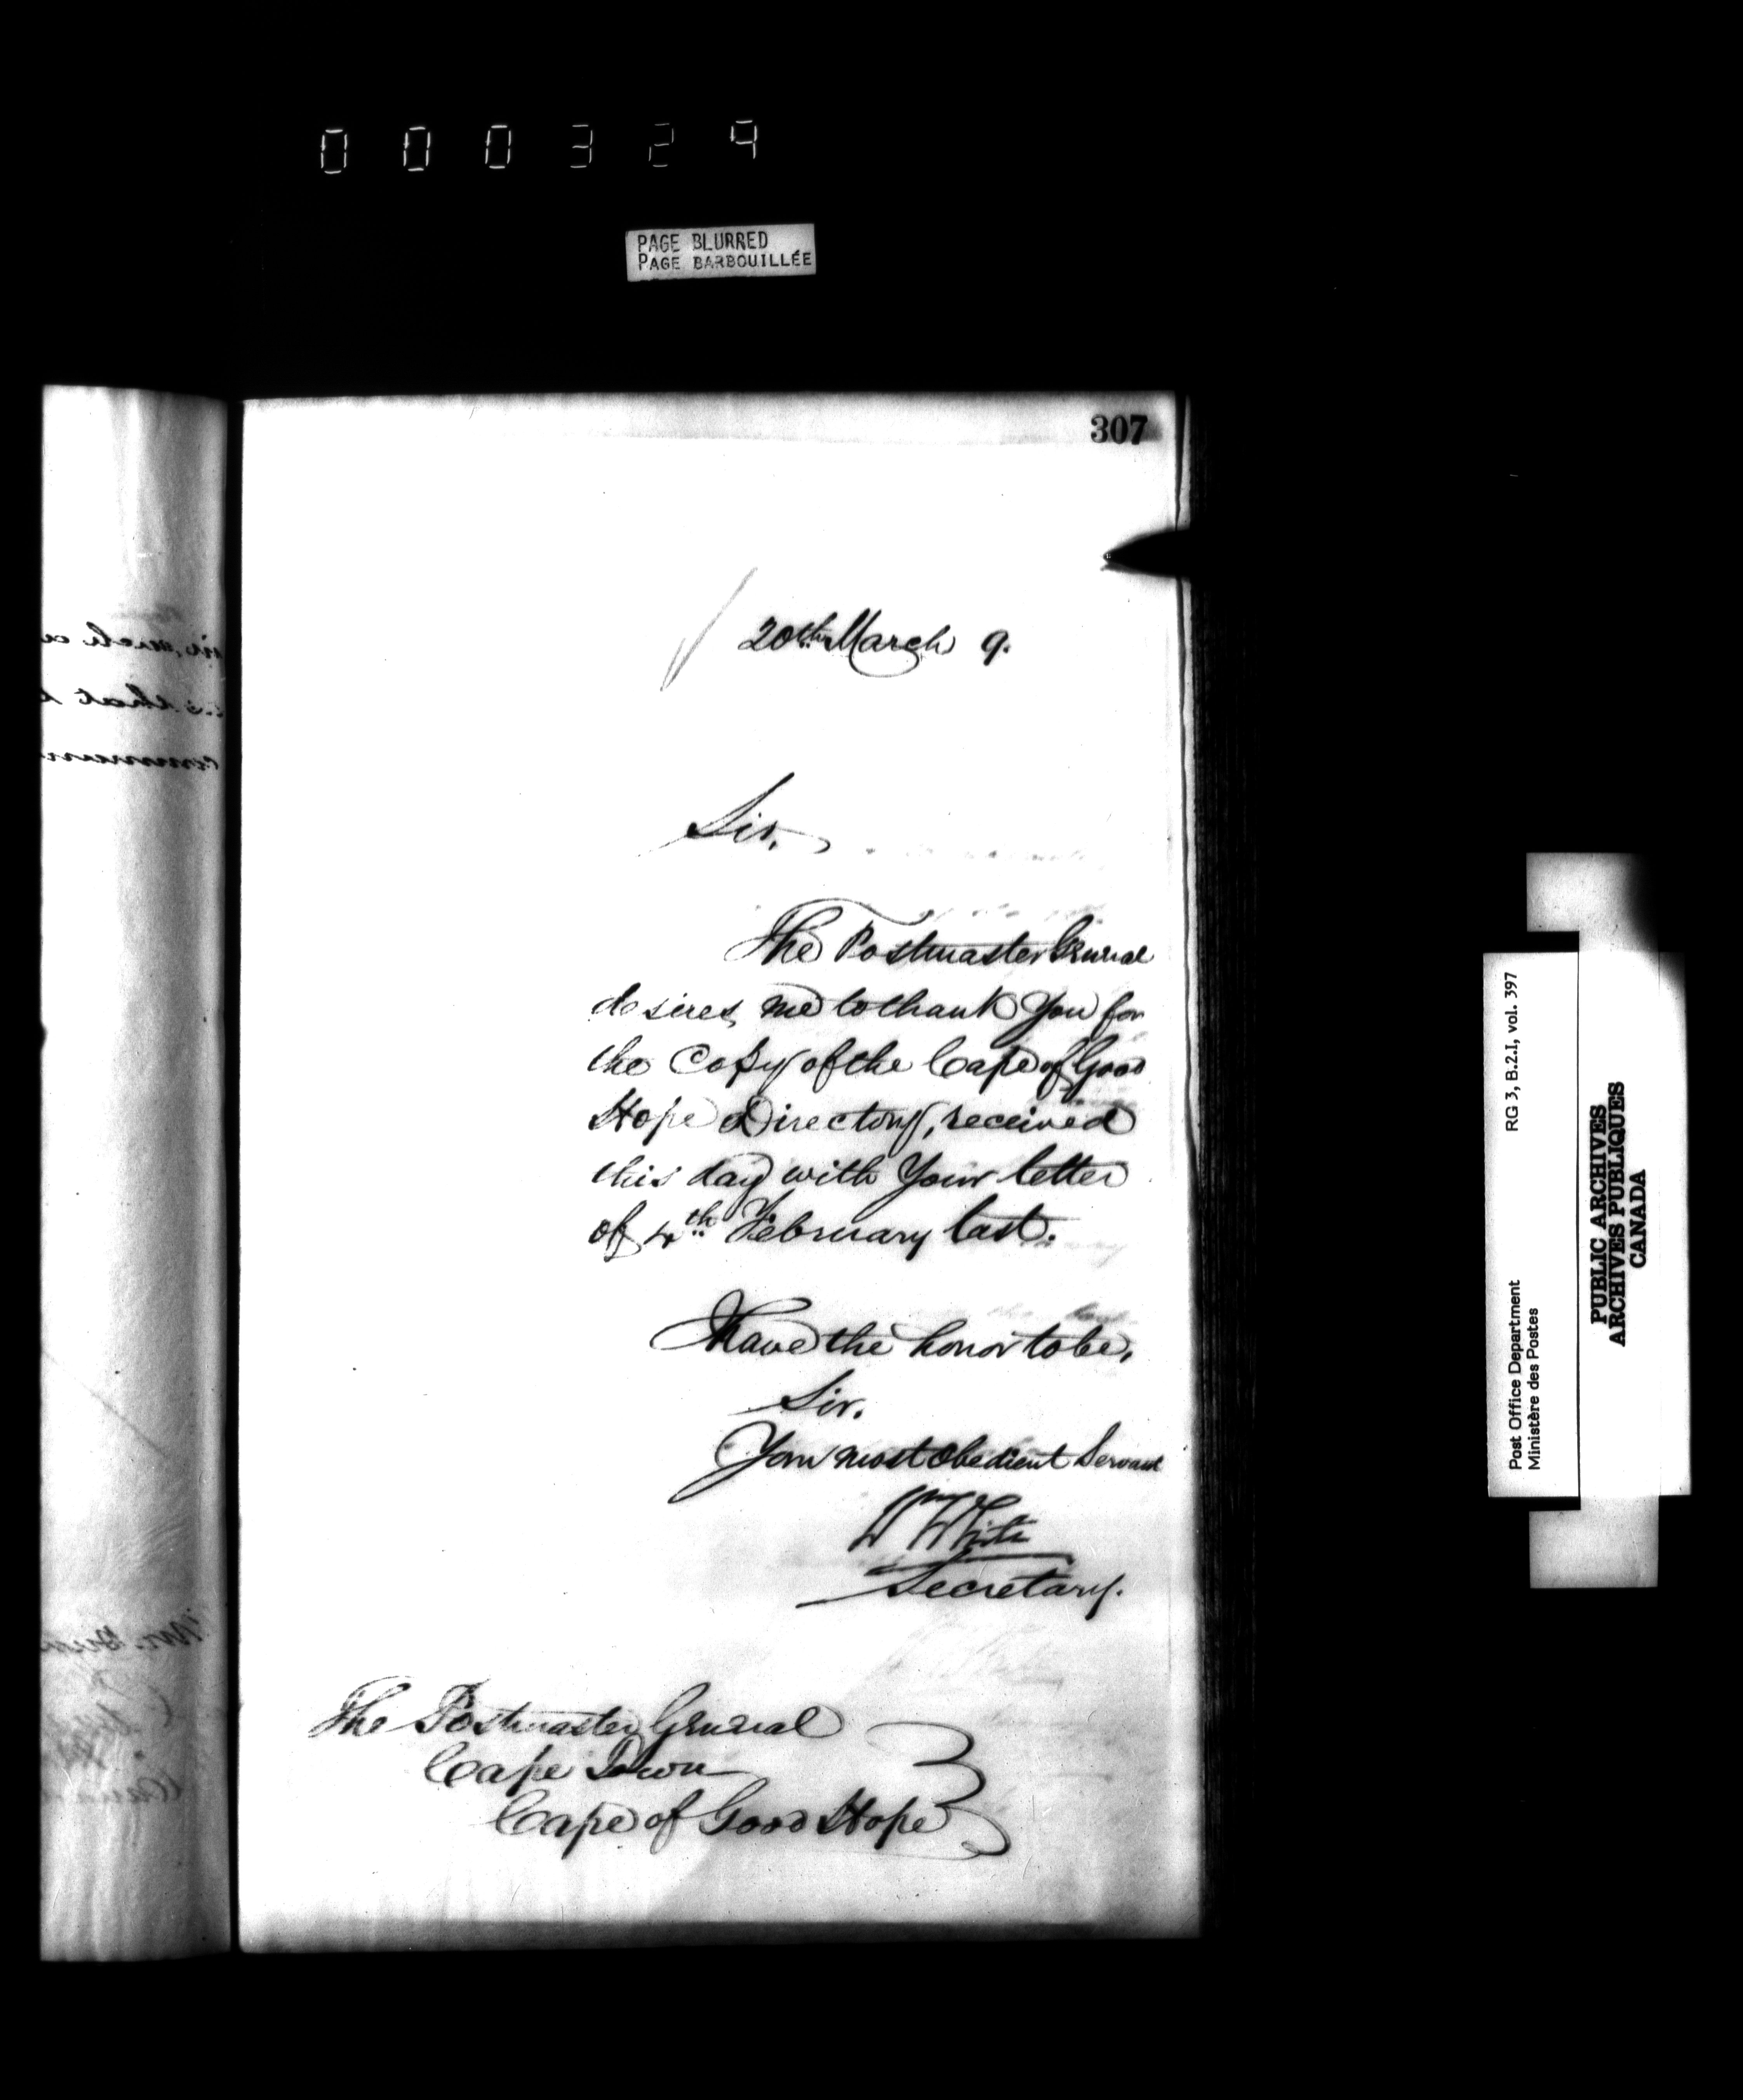 000324
PAGE BLURRED
PAGE BARBOUILLÉE
307
20th March 9.
Sir,
The Postmaster General
desires me to thank You for
the Copy of the Cape of Good
Hope Directory, received
this day with Your letter
of 4th February last.
I have the honor to be,
Sir.
Your most Obedient Servant
Wm White
Secretary.
The Postmaster General
Cape Town
Cape of Good Hope
RG 3, B.2.I, vol. 397
Post Office Department
Ministère des Postes
PUBLIC ARCHIVES
ARCHIVES PUBLIQUES
CANADA